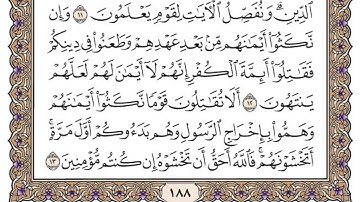 ٱلدِّينِ ۗ وَنُفَصِّلُ ٱلْءَايَٰتِ لِقَوْمٍ يَعْلَمُونَ ١١ وَإِن
نَّكَثُوٓا۟ أَيْمَٰنَهُم مِّنۢ بَعْدِ عَهْدِهِمْ وَطَعَنُوا۟ فِى دِينِكُمْ
فَقَٰتِلُوٓا۟ أَئِمَّةَ ٱلْكُفْرِ ۙ إِنَّهُمْ لَآ أَيْمَٰنَ لَهُمْ لَعَلَّهُمْ
يَنتَهُونَ ١٢ أَلَا تُقَٰتِلُونَ قَوْمًا نَّكَثُوٓا۟ أَيْمَٰنَهُمْ
وَهَمُّوا۟ بِإِخْرَاجِ ٱلرَّسُولِ وَهُم بَدَءُوكُمْ أَوَّلَ مَرَّةٍ ۚ
أَتَخْشَوْنَهُمْ ۚ فَٱللَّهُ أَحَقُّ أَن تَخْشَوْهُ إِن كُنتُم مُّؤْمِنِينَ ١٣
١٨٨